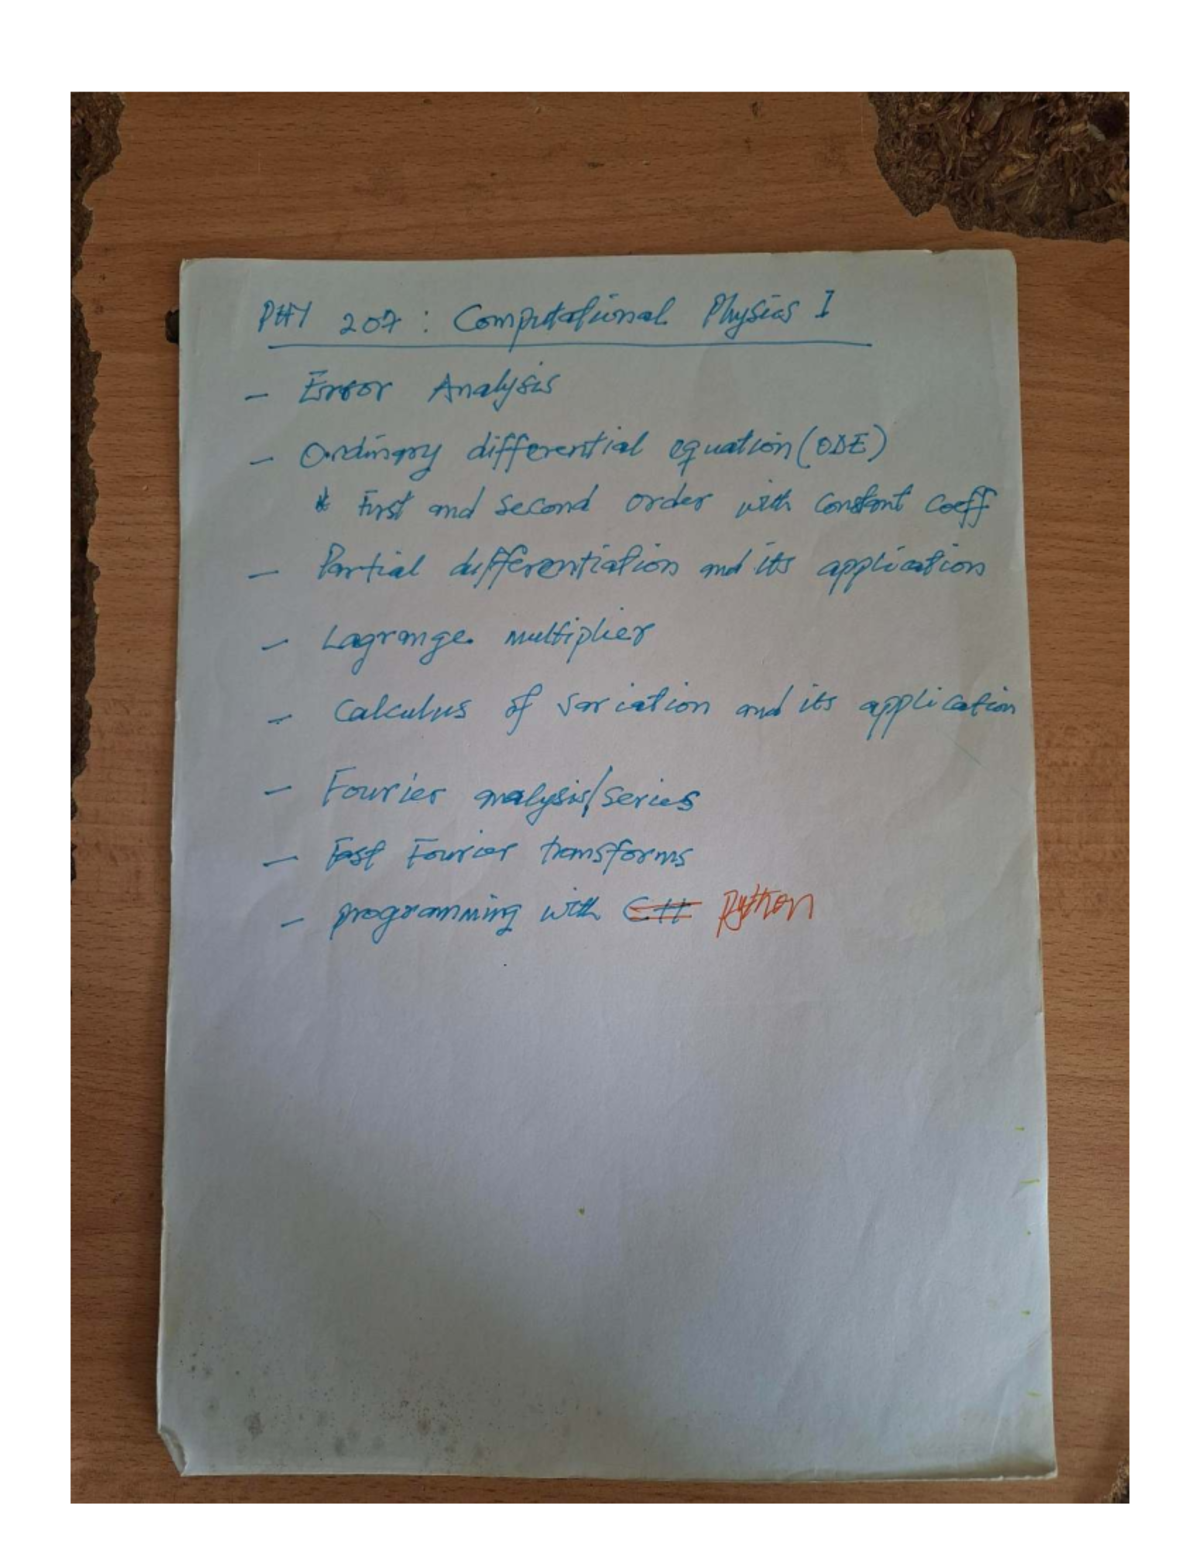 PHY 207 : Computational Physics I
- Error Analysis
- Ordinary differential equation (ODE)
* First and second order with constant coeff
- Partial differentiation and its application
- Lagrange multiplier
- Calculus of variation and its application
- Fourier analysis/series
- Fast Fourier transforms
- programming with C++ Python